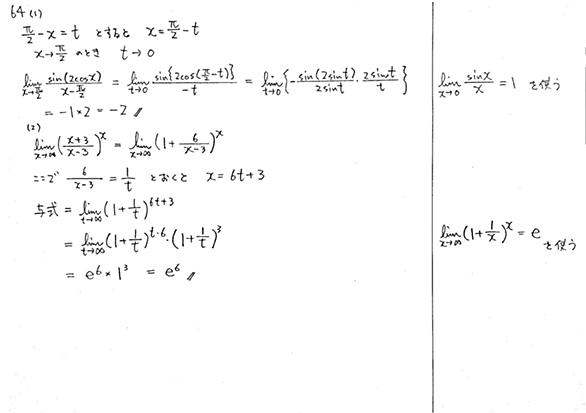 64 (1)
π/2 - x = t とすると x = π/2 - t
x→π/2 のとき t→0
lim_{x→π/2} sin(2cosx)/(x-π/2) = lim_{t→0} sin{2cos(π/2-t)}/(-t) = lim_{t→0} {-sin(2sint)/(2sint)・2sint/t}
= -1×2 = -2 //
lim_{x→0} sinx/x = 1 を使う
(2)
lim_{x→∞} ((x+3)/(x-3))^x = lim_{x→∞} (1 + 6/(x-3))^x
ここで 6/(x-3) = 1/t とおくと x = 6t+3
与式 = lim_{t→∞} (1+1/t)^{6t+3}
= lim_{t→∞} (1+1/t)^{t・6}・(1+1/t)^3
= e^6 × 1^3 = e^6 //
lim_{x→∞} (1+1/x)^x = e を使う